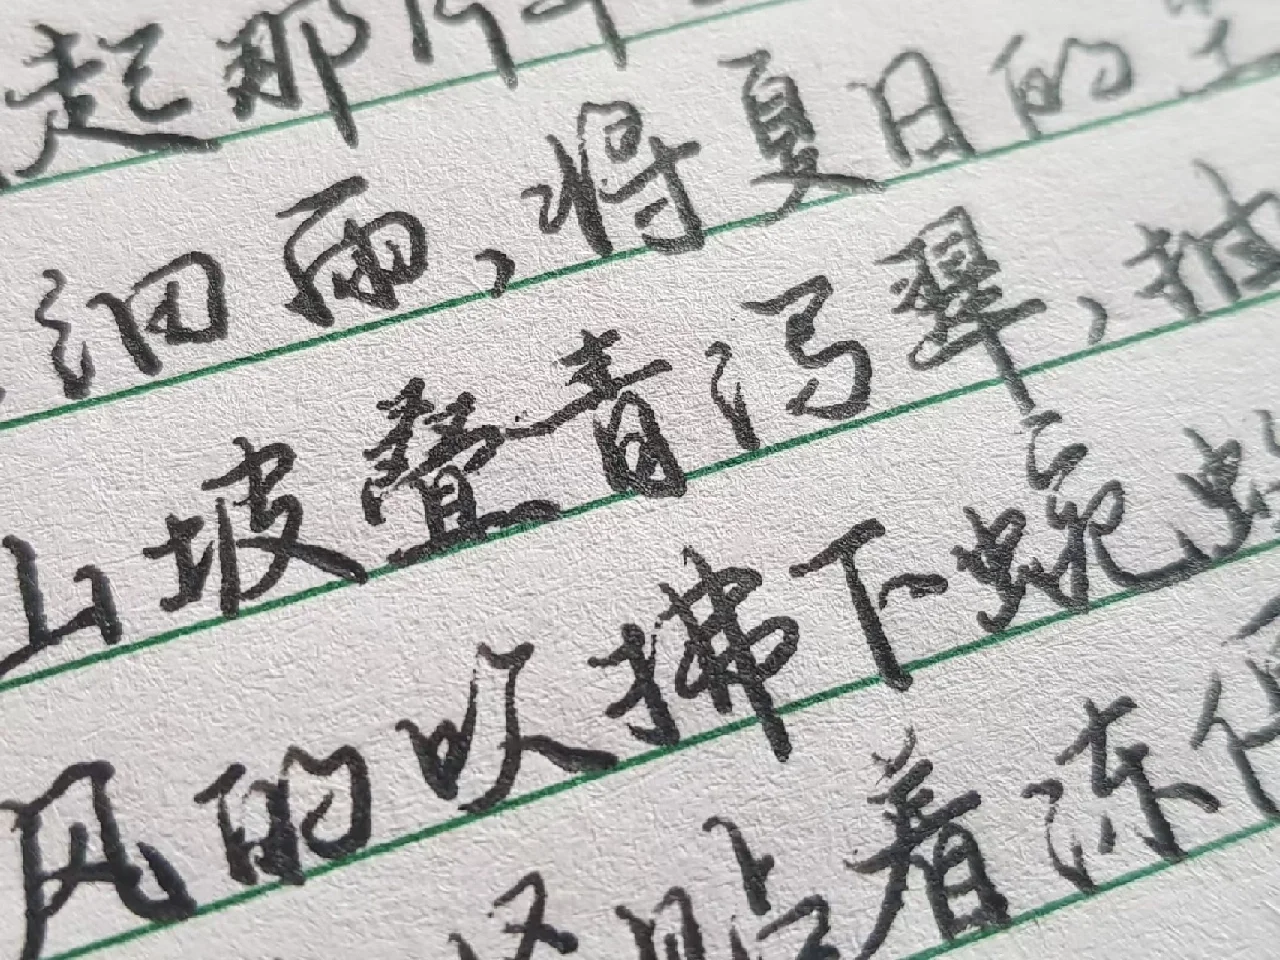 起那片
细雨，将夏日的
山坡叠青泻翠，抽
风的吹拂下蜿
贴着冻